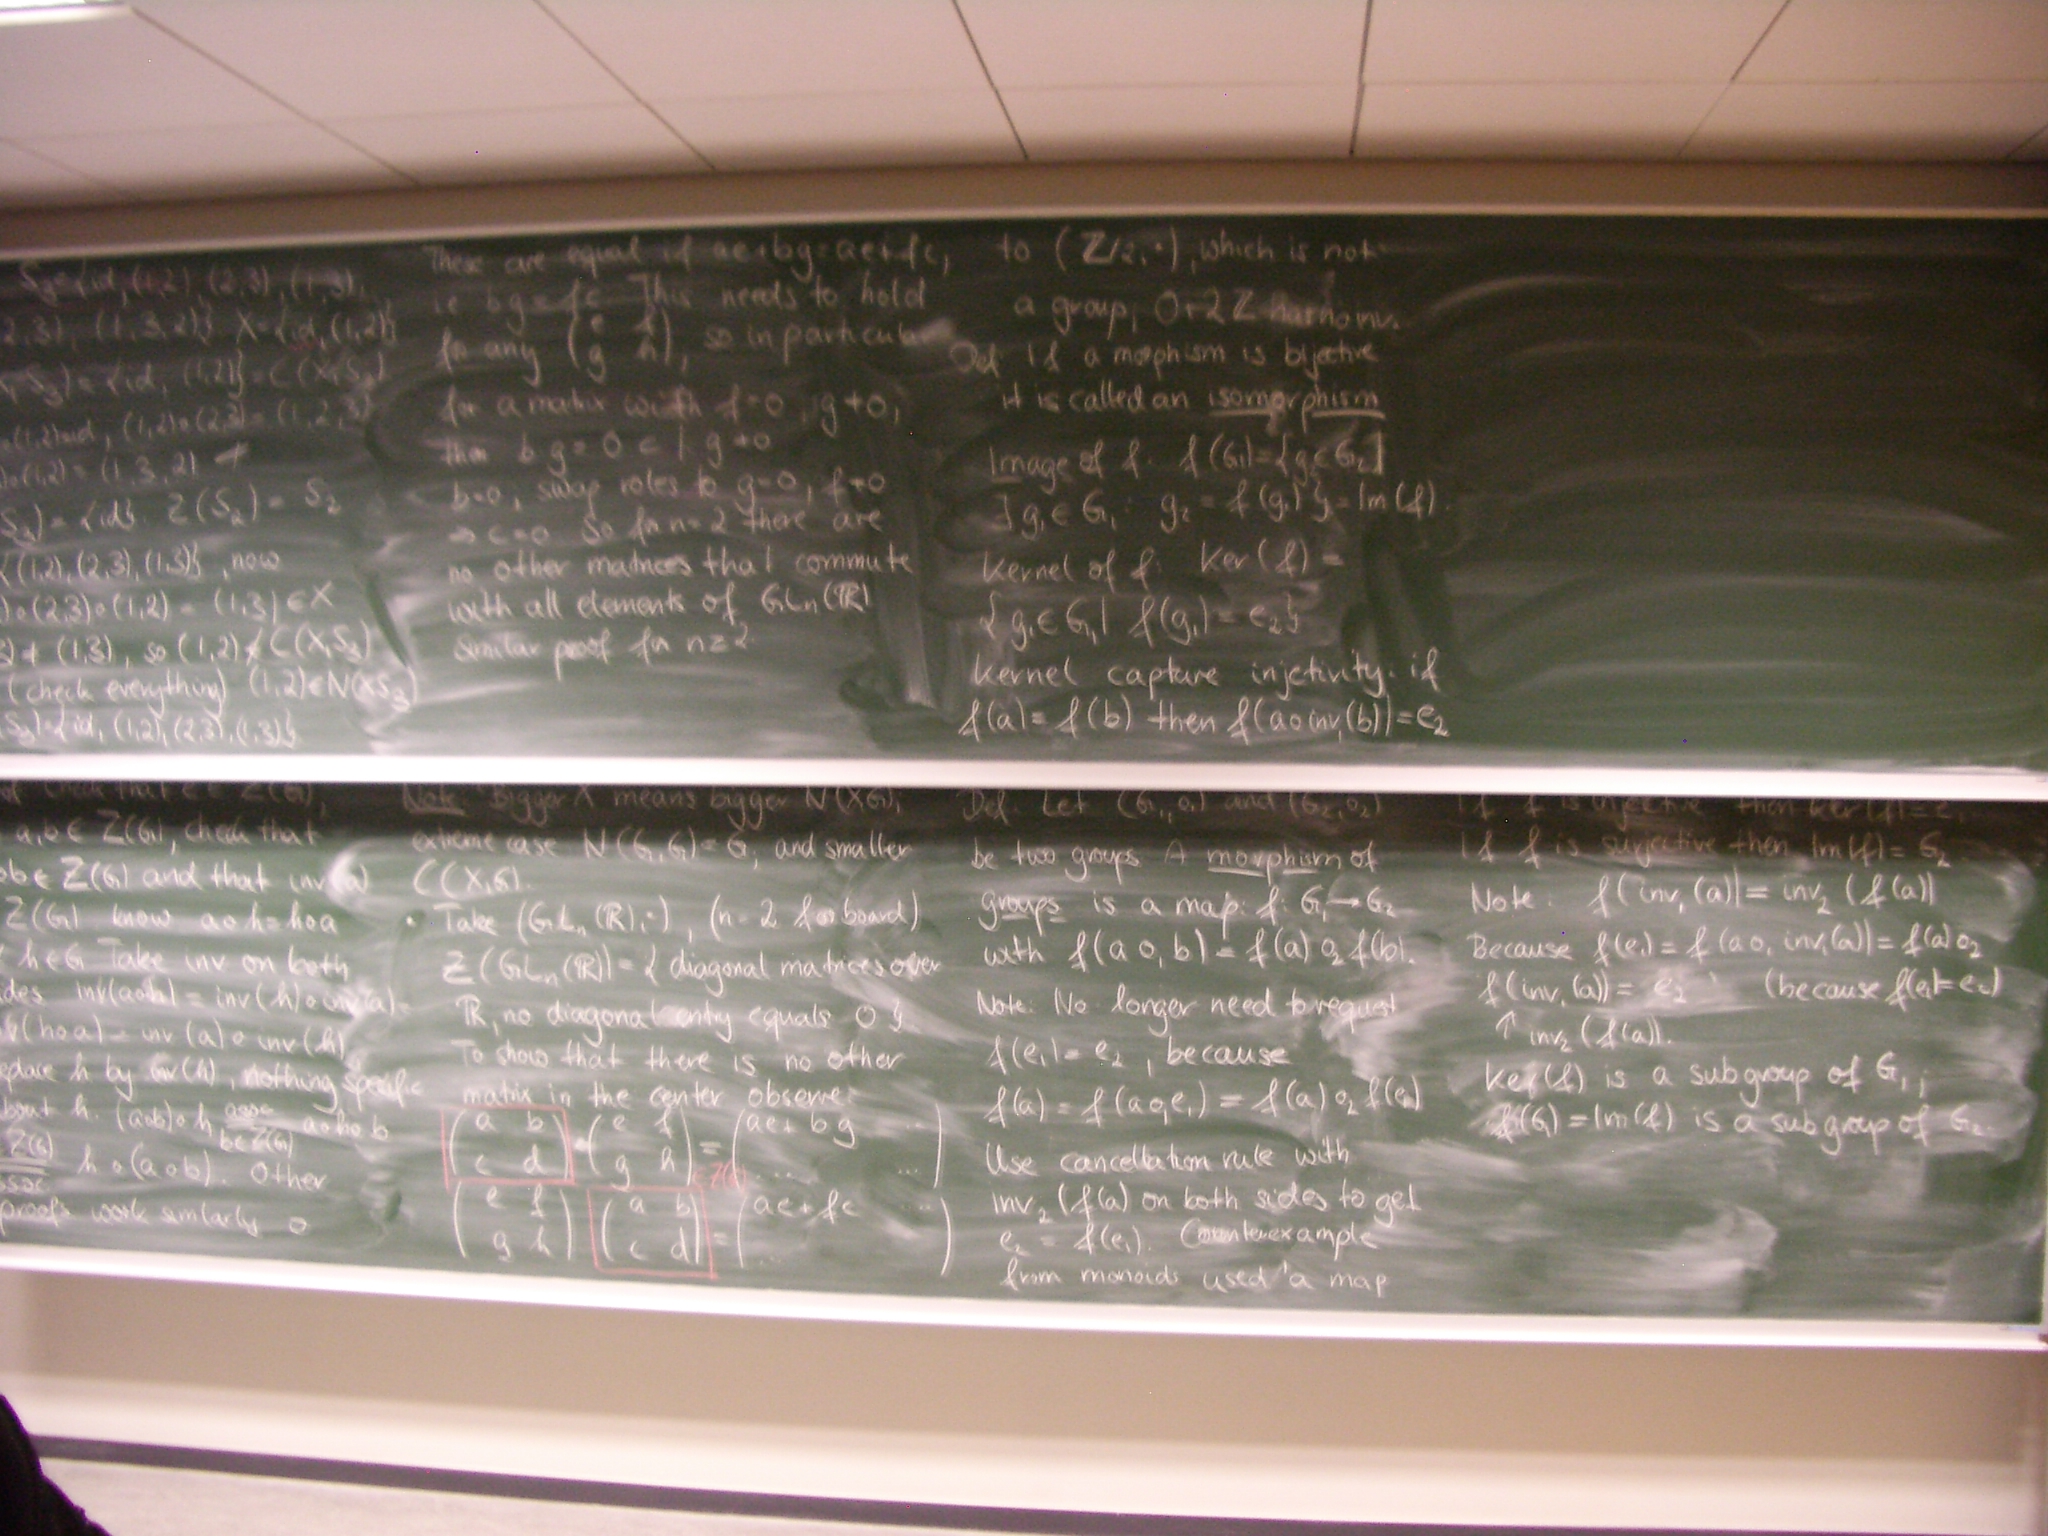 S₃={id, (1,2), (2,3), (1,3),
2,3), (1,3,2)} X={id,(1,2)}
S₃)={id, (1,2)}=C(X,S₃)
(1,2)=id, (1,2)∘(2,3)=(1,2,3)
)∘(1,2)=(1,3,2)
S₃)={id}. Z(S₂)=S₂
{(1,2),(2,3),(1,3)}, now
)∘(2,3)∘(1,2)=(1,3)∈X
≠(1,3), so (1,2)∉C(X,S₃)
(check everything) (1,2)∈N(X,S₃)
S₃)={id,(1,2),(2,3),(1,3)}
These are equal if ae+bg=ae+fc,
i.e. bg=fc. This needs to hold
for any (e f
g h), so in particular
for a matrix with f=0, g≠0,
then bg=0 g≠0
b=0, swap roles to g=0, f≠0
⇒ c=0 So for n=2 there are
no other matrices that commute
with all elements of GLₙ(ℝ)
Similar proof for n≥2
to (Z/2,·), which is not
a group, 0+2Z has no inv.
Def If a morphism is bijective
it is called an isomorphism
Image of f. f(G₁)={g∈G₂|
∃g₁∈G₁: g₂=f(g₁)}=Im(f).
Kernel of f: Ker(f)=
{g₁∈G₁| f(g₁)=e₂}
Kernel capture injectivity: if
f(a)=f(b) then f(a∘inv₁(b))=e₂
check that e∈Z(G),
a,b∈Z(G), check that
∘b∈Z(G) and that inv(a)
Z(G) know a∘h=h∘a
h∈G Take inv on both
ides inv(a∘h)=inv(h)∘inv(a)=
(h∘a)=inv(a)∘inv(h)
eplace h by inv(h), nothing specific
bout h. (a∘b)∘h assoc a∘h∘b
b∈Z(G)
Z(G) h∘(a∘b). Other
assoc
proofs work similarly □
Note: Bigger X means bigger N(X,G),
extreme case N(G,G)=G, and smaller
C(X,G).
· Take (GLₙ(ℝ),·), (n=2 for board)
Z(GLₙ(ℝ))={ diagonal matrices over
ℝ, no diagonal entry equals 0}
To show that there is no other
matrix in the center observe:
(a b
c d)·(e f
g h)=(ae+bg ...
... ...)
(e f
g h)(a b
c d)=(ae+fc ...
...)
Def. Let (G₁,∘₁) and (G₂,∘₂)
be two groups A morphism of
groups is a map: f: G₁→G₂
with f(a∘₁b)=f(a)∘₂f(b).
Note: No longer need to request
f(e₁)=e₂, because
f(a)=f(a∘₁e₁)=f(a)∘₂f(e₁)
Use cancellation rule with
inv₂(f(a)) on both sides to get
e₂=f(e₁). Counterexample
from monoids used a map
If f is injective then ker(f)=e₁
If f is surjective then Im(f)=G₂
Note: f(inv₁(a))=inv₂(f(a))
Because f(e₁)=f(a∘₁inv₁(a))=f(a)∘₂
f(inv₁(a))=e₂ (because f(e₁)=e₂)
↑ inv₂(f(a)).
Ker(f) is a subgroup of G₁;
f(G₁)=Im(f) is a subgroup of G₂.